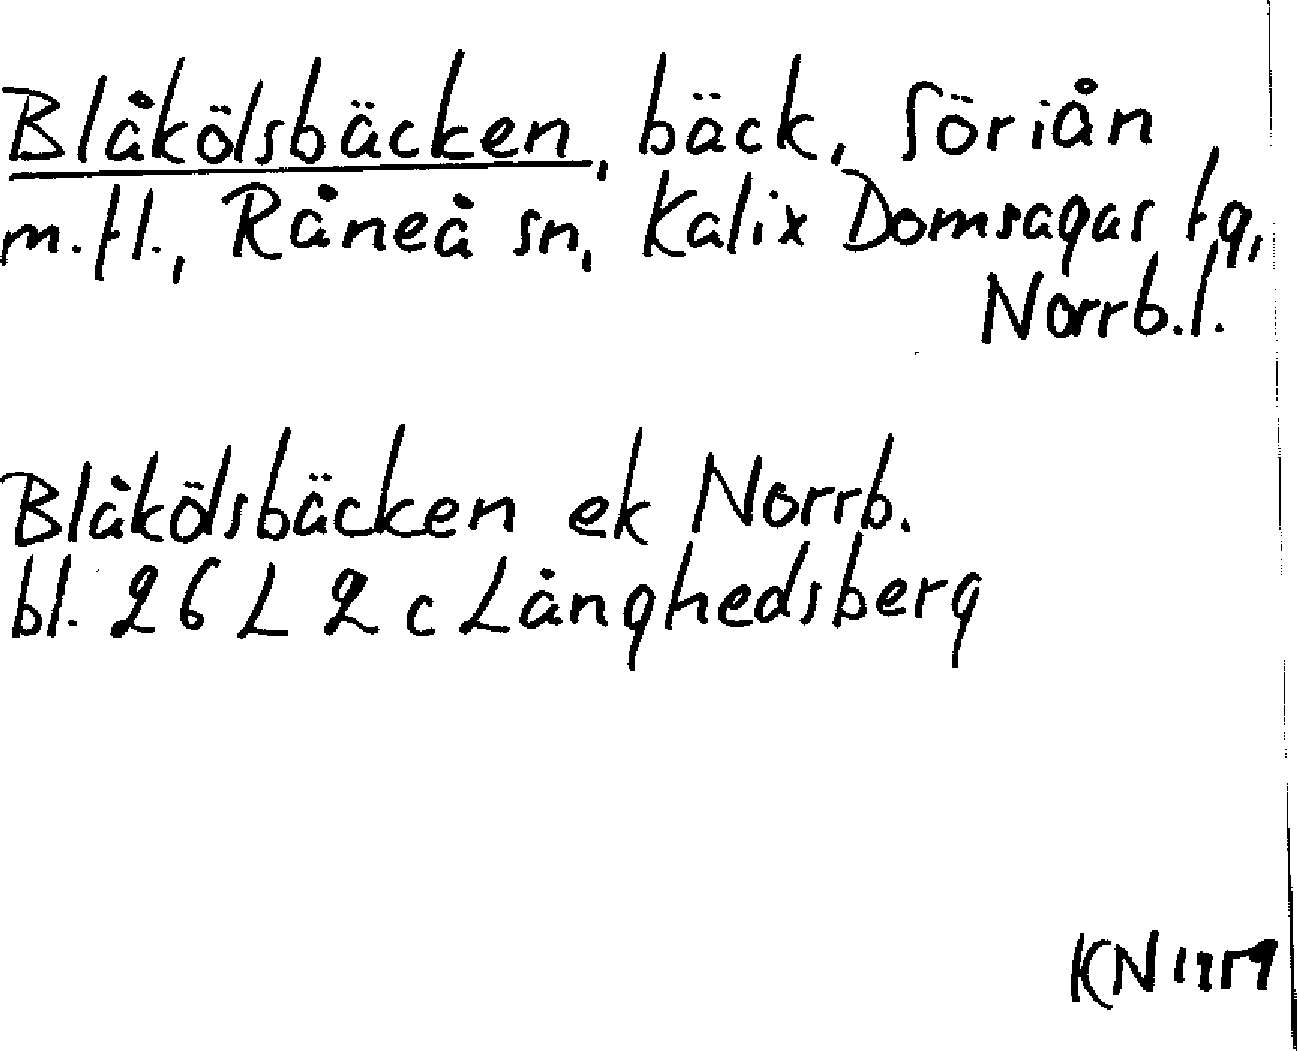 Blåkölsbäcken, bäck, Söriån
m.fl., Råneå sn, Kalix Domsagas tg,
Norrb.l.
Blåkölsbäcken ek Norrb.
bl. 26 L 2 c Långhedsberg
KN